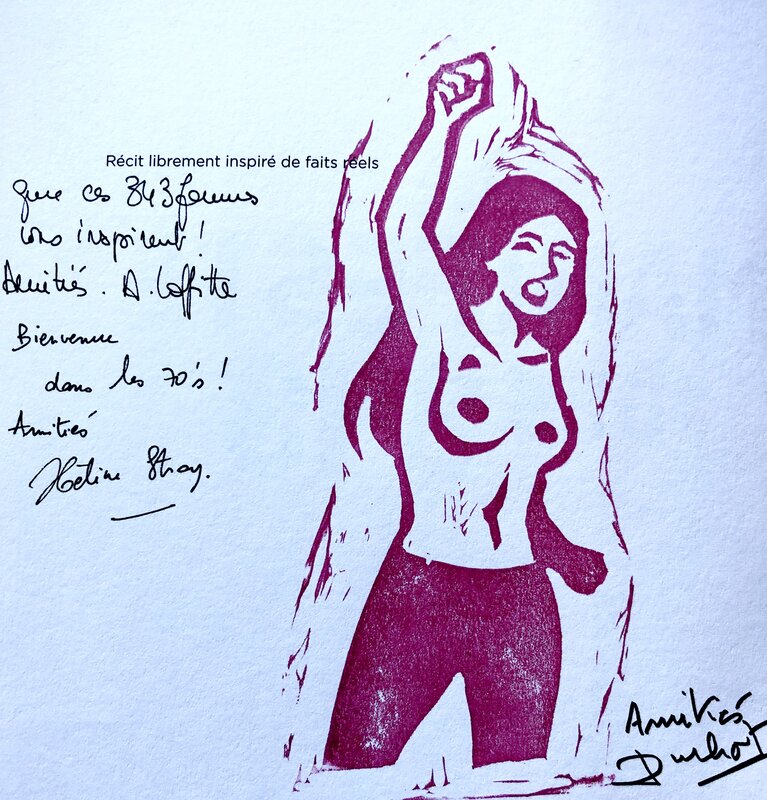 Récit librement inspiré de faits réels
Que ces 343 femmes
vous inspirent !
Amitiés. A. Laffitte
Bienvenue
dans les 70's !
Amitiés
Hélène Strag.
Amitiés
Duphot